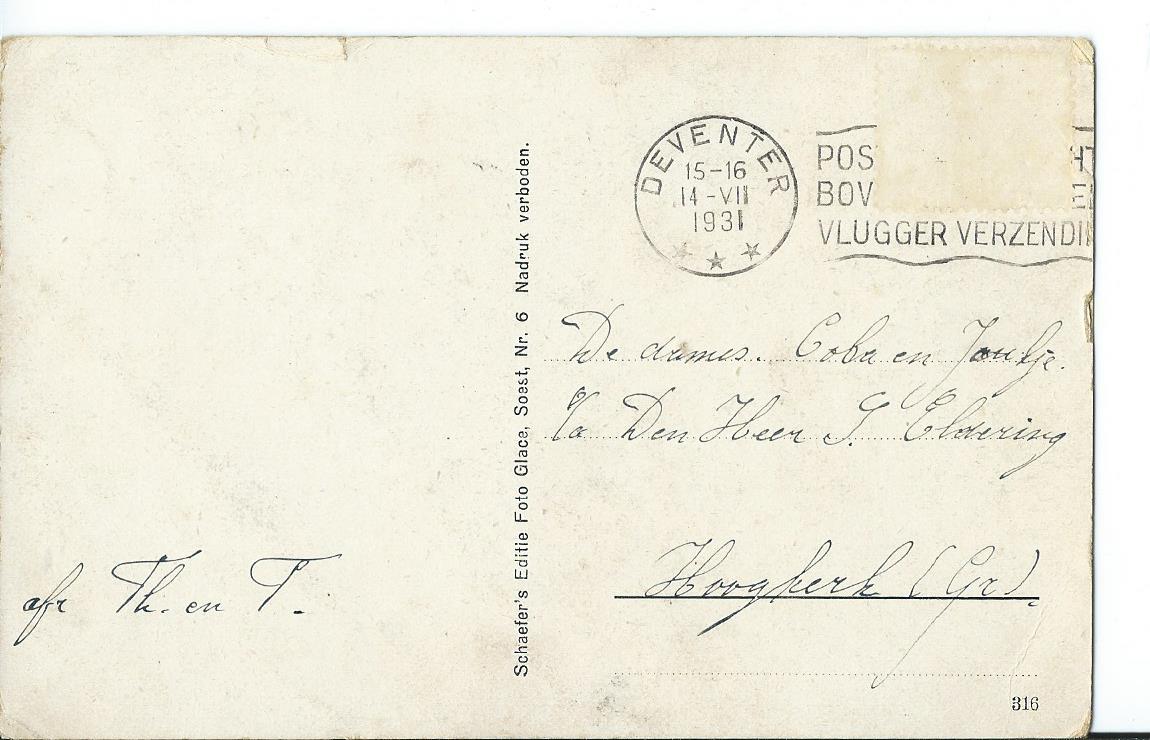 DEVENTER
15-16
14-VII
1931
POS HT
BOV E
VLUGGER VERZENDI
Schaefer's Editie Foto Glace, Soest, Nr. 6 Nadruk verboden.
De dames. Coba en Jantje.
Den Heer J. Eldering
Hoogkerk (Gr).
afz Th. en T.
316